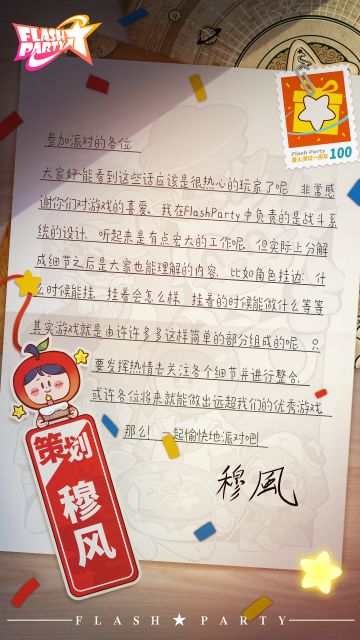 FLASH
PARTY
Flash Party
100
参加派对的各位
大家好~能看到这些话应该是很热心的玩家了呢 非常感
谢你们对游戏的喜爱。我在FlashParty中负责的是战斗系
统的设计 听起来是有点宏大的工作呢 但实际上分解
成细节之后是大家也能理解的内容 比如角色挂边：什
么时候能挂 挂着会怎么样 挂着的时候能做什么等等
其实游戏就是由许许多多这样简单的部分组成的呢 只
要发挥热情去关注各个细节并进行整合
或许各位将来就能做出远超我们的优秀游戏
那么！一起愉快地派对吧！
穆风
策划
穆风
FLASH★PARTY